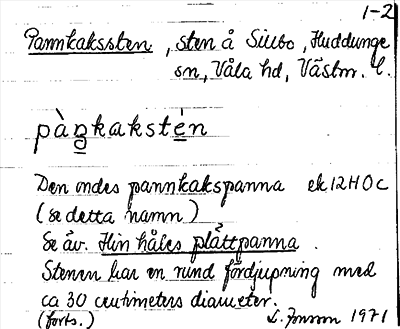 1-2
Pannkakssten, sten å Siubo, Huddunge
sn, Våla hd, Västm. l.
pàŋkakstén
Den ondes pannkakspanna ek 12H0c
(se detta namn)
Se äv. Hin håles plättpanna.
Stenen har en rund fördjupning med
ca 30 centimeters diameter.
(forts.) L. Jonson 1971